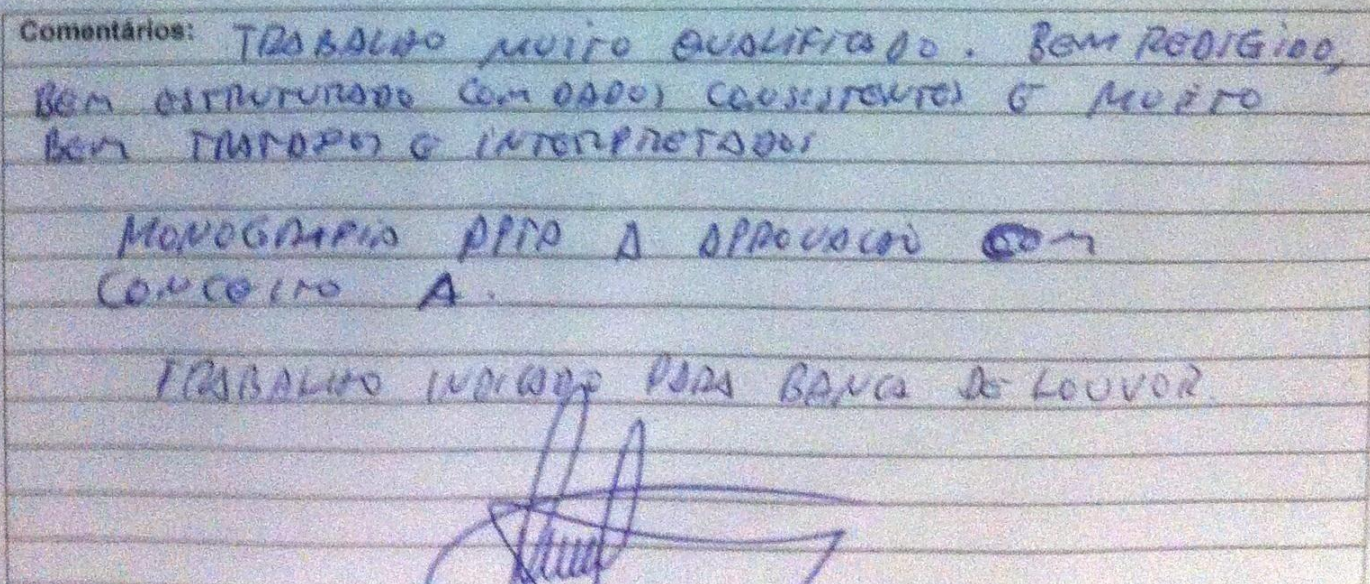 Comentários: TRABALHO MUITO QUALIFICADO. BEM REDIGIDO,
BEM ESTRUTURADO COM DADOS CONSISTENTES E MUITO
BEM TRATADOS E INTERPRETADOS
MONOGRAFIA APTA A APROVACAO COM
CONCEITO A.
TRABALHO INDICADO PARA BANCA DE LOUVOR.